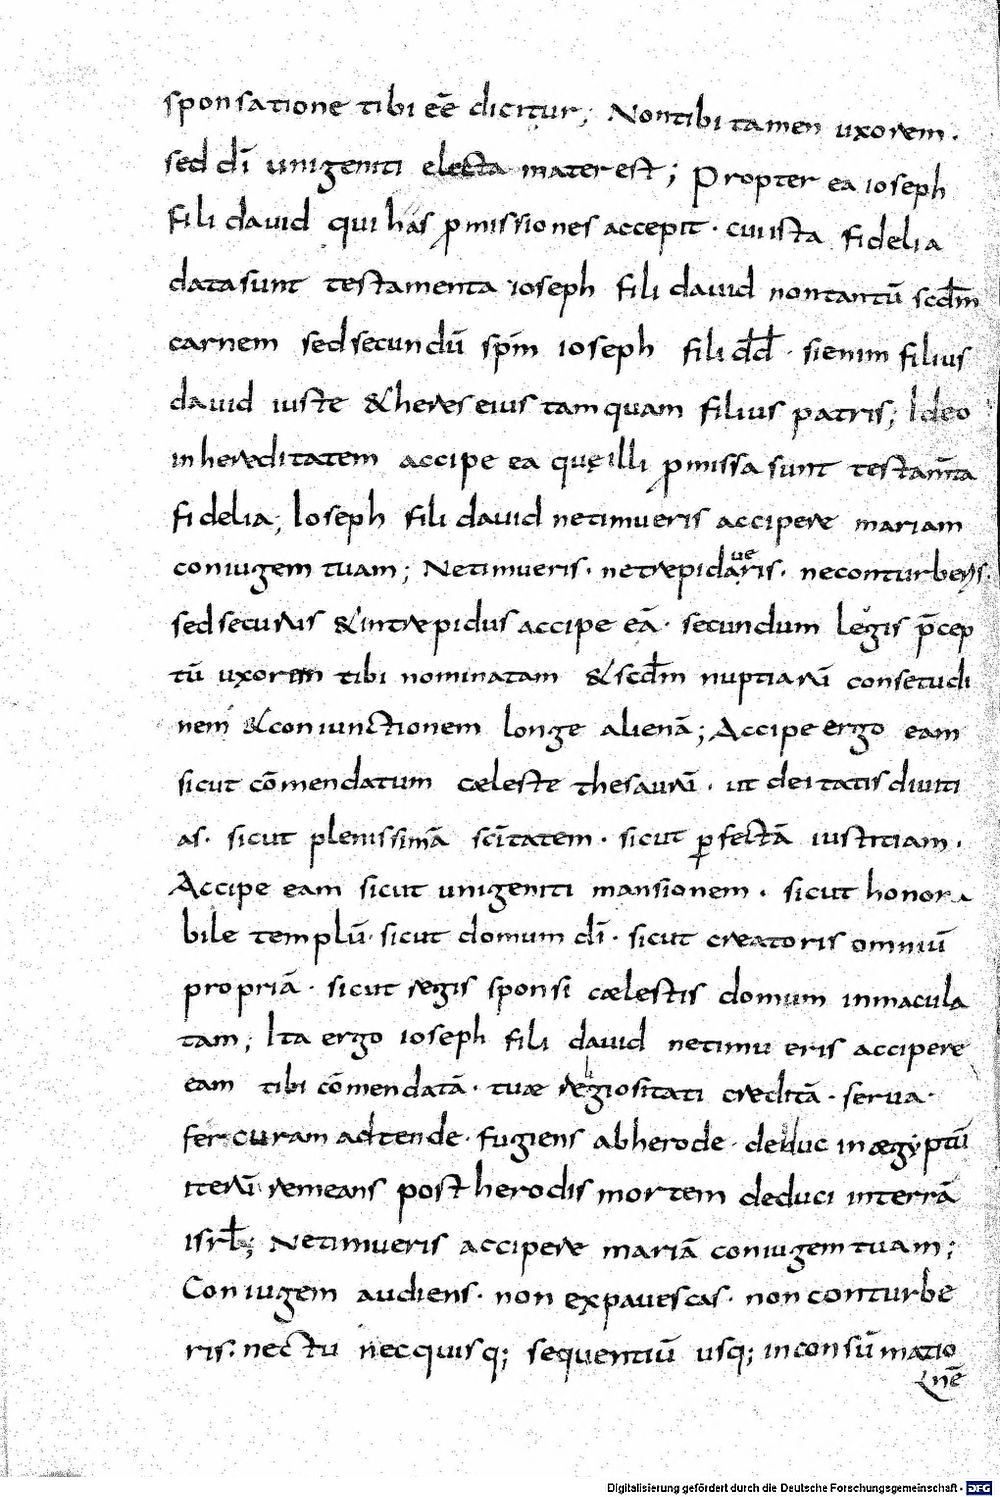 sponsatione tibi eē dicitur; Non tibi tamen uxorem.
sed dī unigeniti electa mater est; Propter ea ioseph
fili dauid qui has pmissiones accepit · cui ista fidelia
data sunt testamenta ioseph fili dauid non tantū scdm̄
carnem sed secundū spm̄ ioseph fili dd̄ · si enim filius
dauid iuste & heres eius tamquam filius patris; Ideo
in hereditatem accipe ea quę illi pmissa sunt testam̄ta
fidelia; Ioseph fili dauid ne timueris accipere mariam
coniugem tuam; Ne timueris · ne trepidaueris · ne conturberis ·
sed securus & intrepidus accipe eā · secundum legis p̄cep
tū uxorem tibi nominatam & scdm̄ nuptiarū consetudi
nem & coniunctionem longe alienā; Accipe ergo eam
sicut cōmendatum cæleste thesaurū · ut deitatis diuiti
as · sicut plenissimā scītatem · sicut pfectā iustitiam ·
Accipe eam sicut unigeniti mansionem · sicut honora
bile templū · sicut domum dī · sicut creatoris omniū
propriā · sicut regis sponsi cælestis domum inmacula
tam; Ita ergo ioseph fili dauid ne timueris accipere
eam tibi cōmendatā · tuæ religiositati creditā · serua ·
fer curam adtende · fugiens ab herode · deduc in ægyptū
iterū remeans post herodis mortem deduci in terrā
isrl̄; Ne timueris accipere mariā coniugem tuam;
Coniugem audiens · non expauescas · non conturbe
ris · nec tu nec quisq; sequentiū usq; in consūmatio
nē
Digitalisierung gefördert durch die Deutsche Forschungsgemeinschaft - DFG